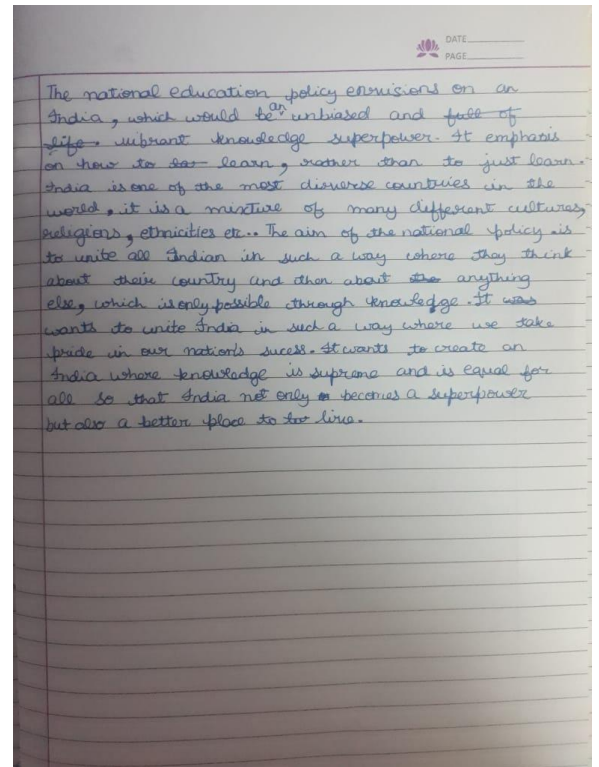 DATE
PAGE
The national education policy envisions on an
India, which would be an unbiased and full of
life. vibrant knowledge superpower. It emphasis
on how to lear learn, rather than to just learn.
India is one of the most disverse countries in the
world, it is a mixture of many different cultures,
religions, ethnicities etc.. The aim of the national policy is
to unite all Indian in such a way where they think
about their country and then about the anything
else, which is only possible through knowledge. It was
wants to unite India in such a way where we take
pride in our nation's sucess. It wants to create an
India where knowledge is supreme and is equal for
all so that India not only becomes a superpower
but also a better place to live.